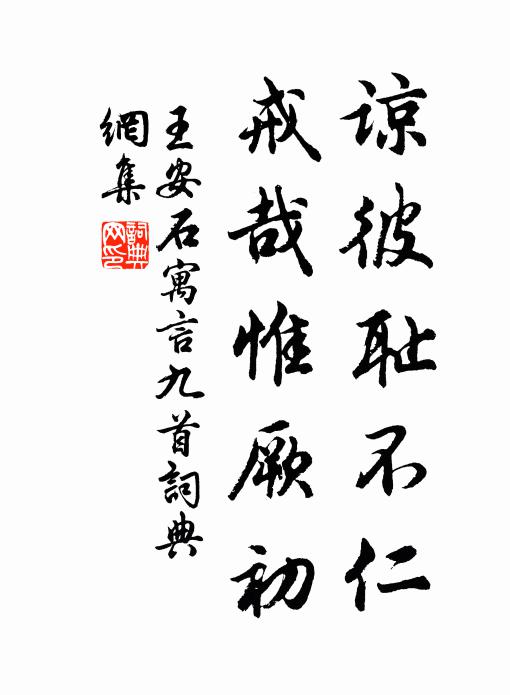 諒彼耻不仁
戒哉惟厥初
王安石寓言九首詞典
網集
詞典
网印